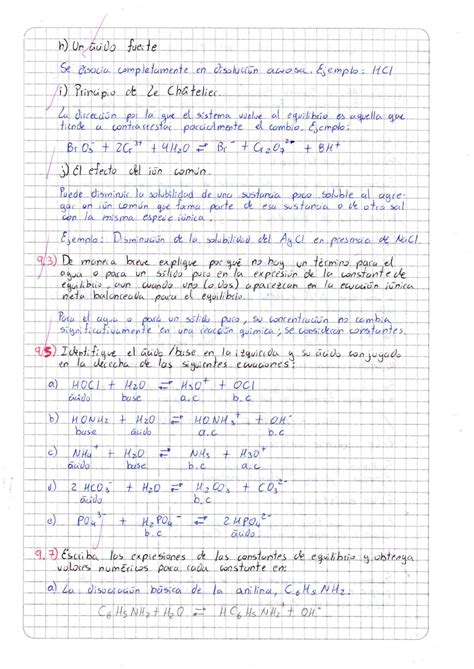 h) Un ácido fuerte
Se disocia completamente en disolución acuosa. Ejemplo: HCl
i) Principio de Le Châtelier.
La dirección por la que el sistema vuelve al equilibrio es aquella que
tiende a contrarrestar parcialmente el cambio. Ejemplo:
BrO₃⁻ + 2Cr³⁺ + 4H₂O ⇌ Br⁻ + Cr₂O₇²⁻ + 8H⁺
j) El efecto del ión común.
Puede disminuir la solubilidad de una sustancia poco soluble al agre-
gar un ión común que forma parte de esa sustancia o de otra sal
con la misma especie iónica.
Ejemplo: Disminución de la solubilidad del AgCl en presencia de NaCl.
9.3) De manera breve explique por qué no hay un término para el
agua o para un sólido puro en la expresión de la constante de
equilibrio, aun cuando uno (o dos) aparezcan en la ecuación iónica
neta balanceada para el equilibrio.
Para el agua o para un sólido puro, su concentración no cambia
significativamente en una reacción química; se consideran constantes.
9.5) Identifique el ácido/base en la izquierda y su ácido conjugado
en la derecha de las siguientes ecuaciones:
a) HOCl + H₂O ⇌ H₃O⁺ + OCl
ácido base a.c b.c
b) HONH₂ + H₂O ⇌ HONH₃⁺ + OH⁻
base ácido a.c b.c
c) NH₄⁺ + H₂O ⇌ NH₃ + H₃O⁺
ácido b.c
d) 2 HCO₃⁻ ⇌ H₂CO₃ + CO₃²⁻
ácido b.c
e) PO₄³⁻ + H₂PO₄⁻ ⇌ 2 HPO₄²⁻
ácido b.c
9.7) Escriba las expresiones de las constantes de equilibrio y obtenga
valores numéricos para cada constante en:
a) La disociación básica de la anilina, C₆H₅NH₂.
C₆H₅NH₂ + H₂O ⇌ HC₆H₅NH₂⁺ + OH⁻